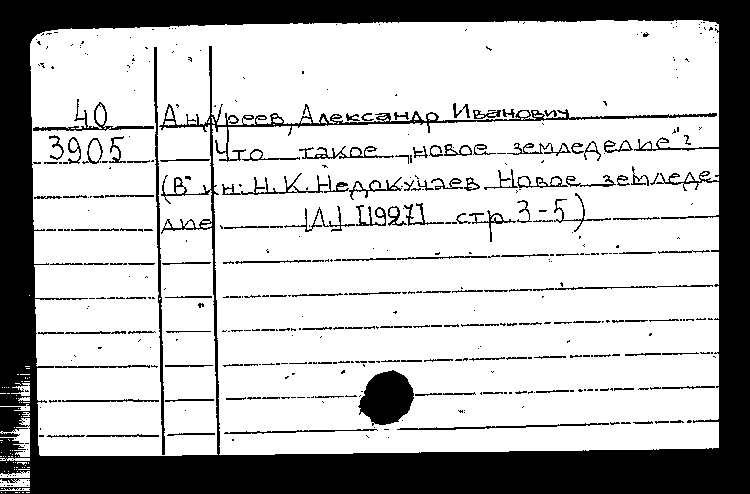 40 Андреев, Александр Иванович
3905 Что такое „новое земледелие"?
(В кн: Н.К. Недокучаев. Новое земледе-
лие. [Л.] [1927] стр. 3-5)